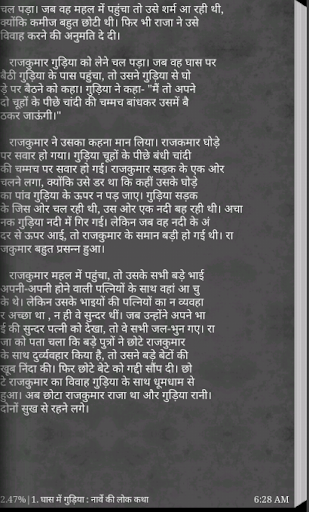 चल पड़ा। जब वह महल में पहुंचा तो उसे शर्म आ रही थी,
क्योंकि कमीज बहुत छोटी थी। फिर भी राजा ने उसे
विवाह करने की अनुमति दे दी।
राजकुमार गुड़िया को लेने चल पड़ा। जब वह घास पर
बैठी गुड़िया के पास पहुंचा, तो उसने गुड़िया से घो
ड़े पर बैठने को कहा। गुड़िया ने कहा- "मैं तो अपने
दो चूहों के पीछे चांदी की चम्मच बांधकर उसमें बै
ठकर जाऊंगी।"
राजकुमार ने उसका कहना मान लिया। राजकमार घोड़े
पर सवार हो गया। गुड़िया चूहों के पीछे बंधी चांदी
की चम्मच पर सवार हो गई। राजकुमार सड़क के एक ओर
चलने लगा, क्योंकि उसे डर था कि कहीं उसके घोड़े
का पांव गुड़िया के ऊपर न पड़ जाए। गुड़िया सड़क
के जिस ओर चल रही थी, उस ओर एक नदी बह रही थी। अचा
नक गुड़िया नदी में गिर गई। लेकिन जब वह नदी के अं
दर से ऊपर आई, तो राजकुमार के समान बड़ी हो गई थी। रा
जकुमार बहुत प्रसन्न हुआ।
राजकुमार महल में पहुंचा, तो उसके सभी बड़े भाई
अपनी-अपनी होने वाली पत्नियों के साथ वहां आ चु
के थे। लेकिन उसके भाइयों की पत्नियों का न व्यवहा
र अच्छा था , न ही वे सुन्दर थीं। जब उन्होंने अपने भा
ई की सुन्दर पत्नी को देखा, तो वे सभी जल-भुन गए। रा
जा को पता चला कि बड़े पुत्रों ने छोटे राजकुमार
के साथ दुर्व्यवहार किया है, तो उसने बड़े बेटों की
खूब निंदा की। फिर छोटे बेटे को गद्दी सौंप दी। छो
टे राजकुमार का विवाह गुड़िया के साथ धूमधाम से
हुआ। अब छोटा राजकुमार राजा था और गुड़िया रानी।
दोनों सुख से रहने लगे।
2.47% | 1. घास में गुड़िया : नार्वे की लोक कथा 6:28 AM